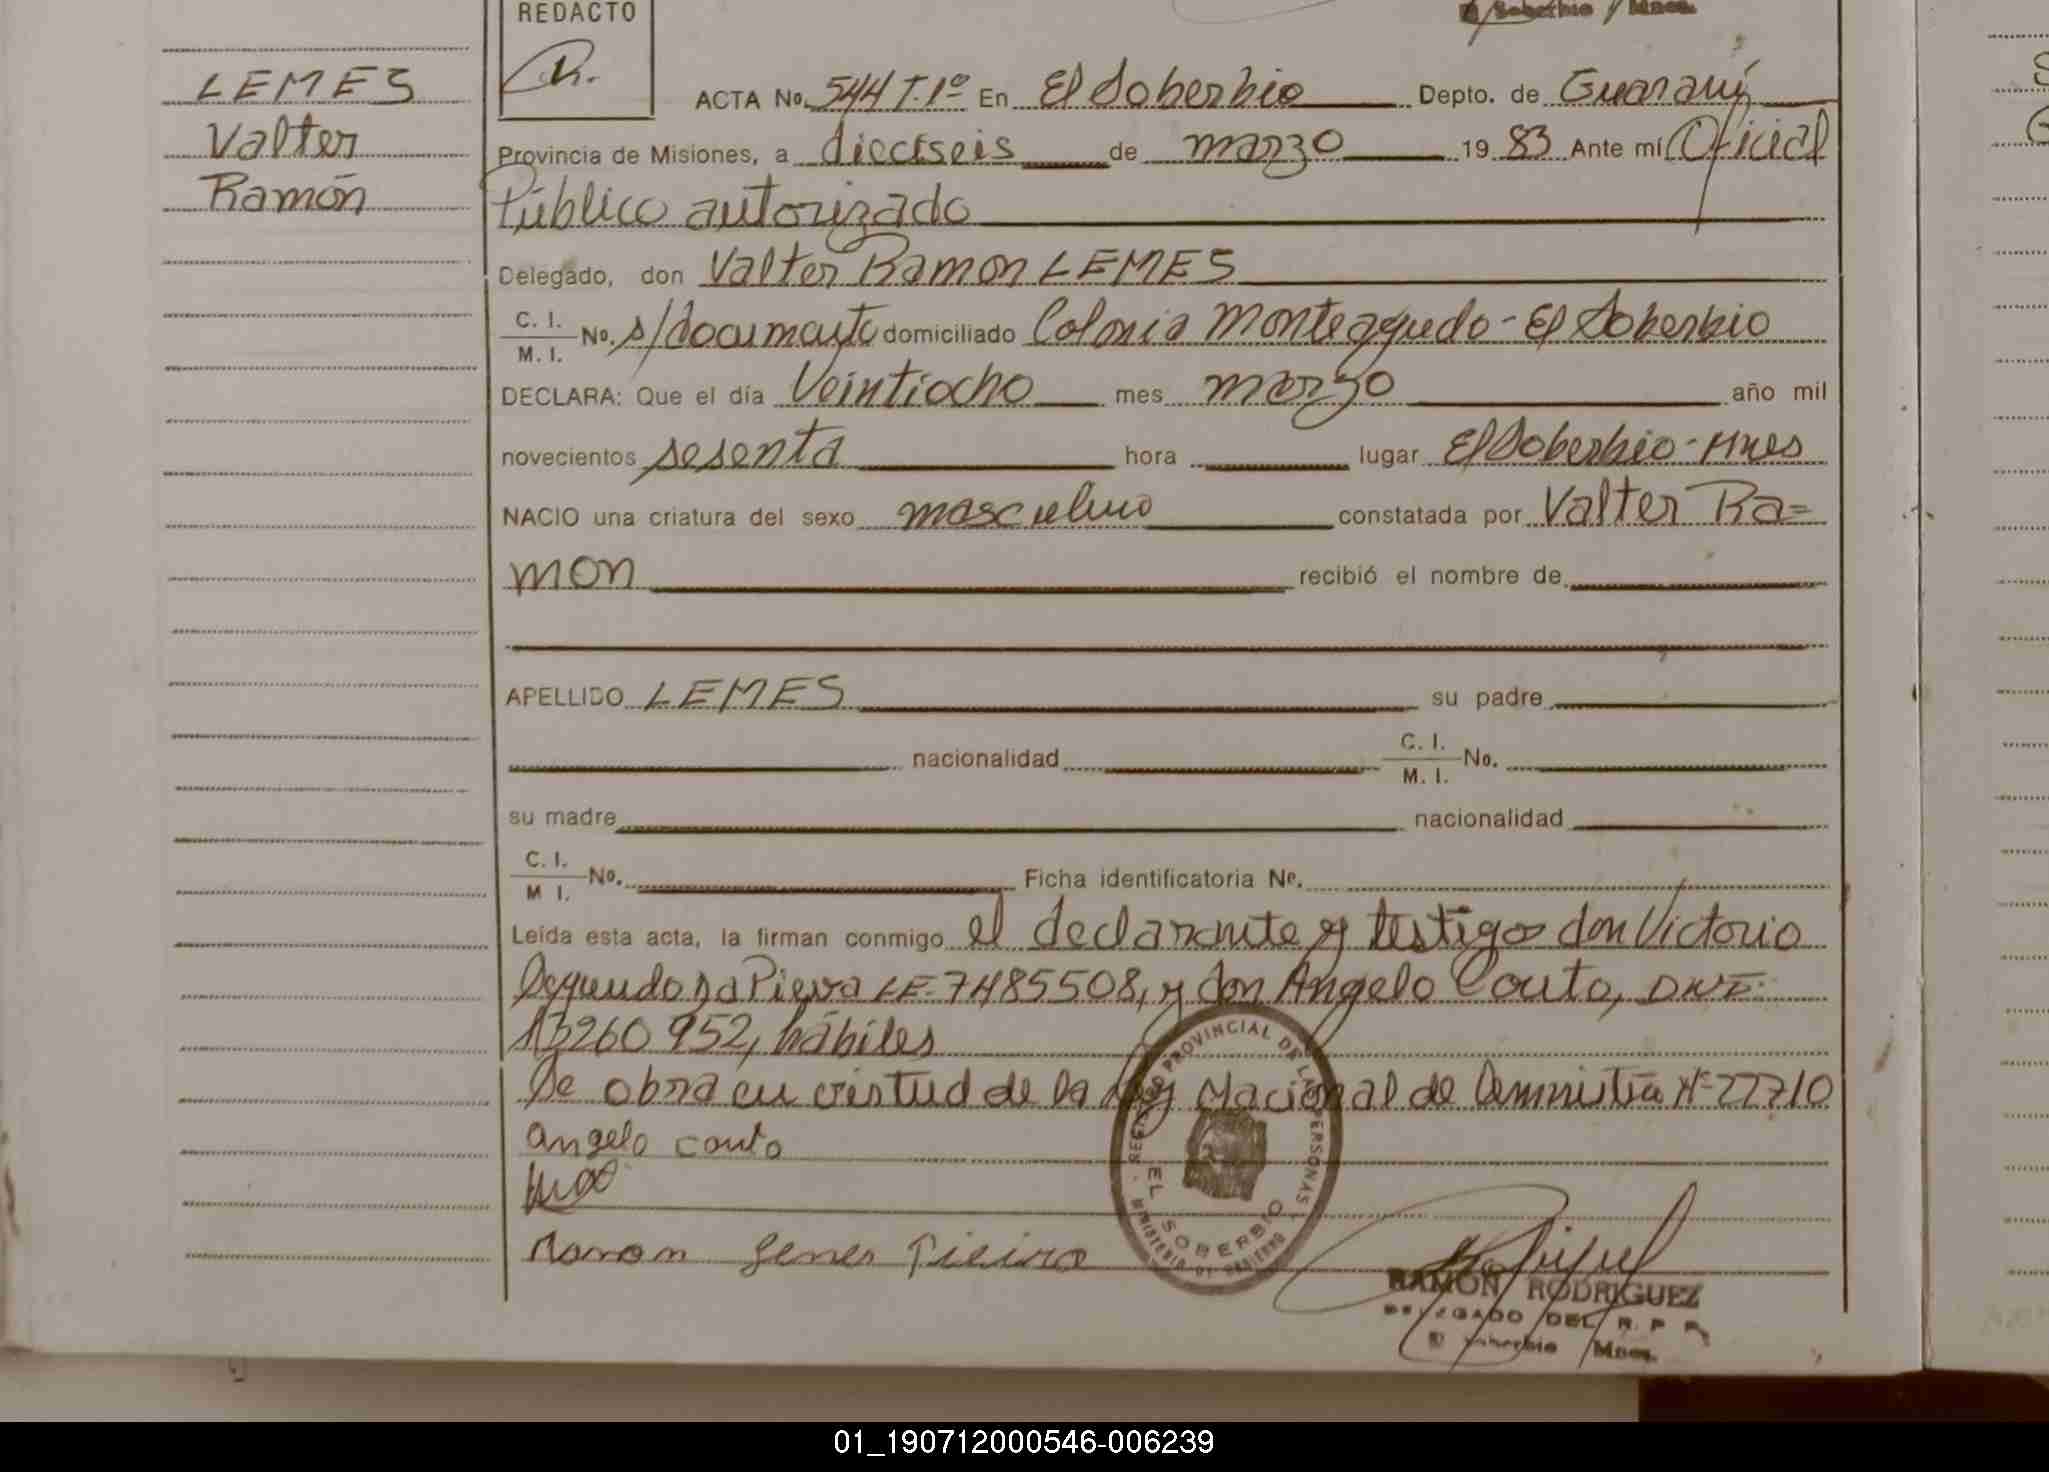 REDACTO
LEMES
Valter
Ramón
ACTA No. 544 T.1º En El Soberbio Depto. de Guaraní
Provincia de Misiones, a dieciseis de marzo 19 83 Ante mí Oficial
Público autorizado
Delegado, don Valter Ramon LEMES
C. I. / M. I. No. s/documento domiciliado Colonia Monteagudo - El Soberbio
DECLARA: Que el día Veintiocho mes marzo año mil
novecientos sesenta hora lugar El Soberbio - Mnes
NACIO una criatura del sexo masculino constatada por Valter Ra=
mon recibió el nombre de
APELLIDO LEMES su padre
nacionalidad C. I. / M. I. No.
su madre nacionalidad
C. I. / M I. No. Ficha identificatoria Nº.
Leída esta acta, la firman conmigo el declarante y testigos don Victorio
Segundo Pieva LE. 7485508, y don Angelo Couto, DNI.
13260 952, hábiles
Se obra en virtud de la Ley Nacional de Amnistia Nº 22710
angelo couto
REGISTRO PROVINCIAL DE LAS PERSONAS
EL SOBERBIO
MINISTERIO DE GOBIERNO
RAMON RODRIGUEZ
DELEGADO DEL R. P. P.
El Soberbio Mnes.
01_190712000546-006239